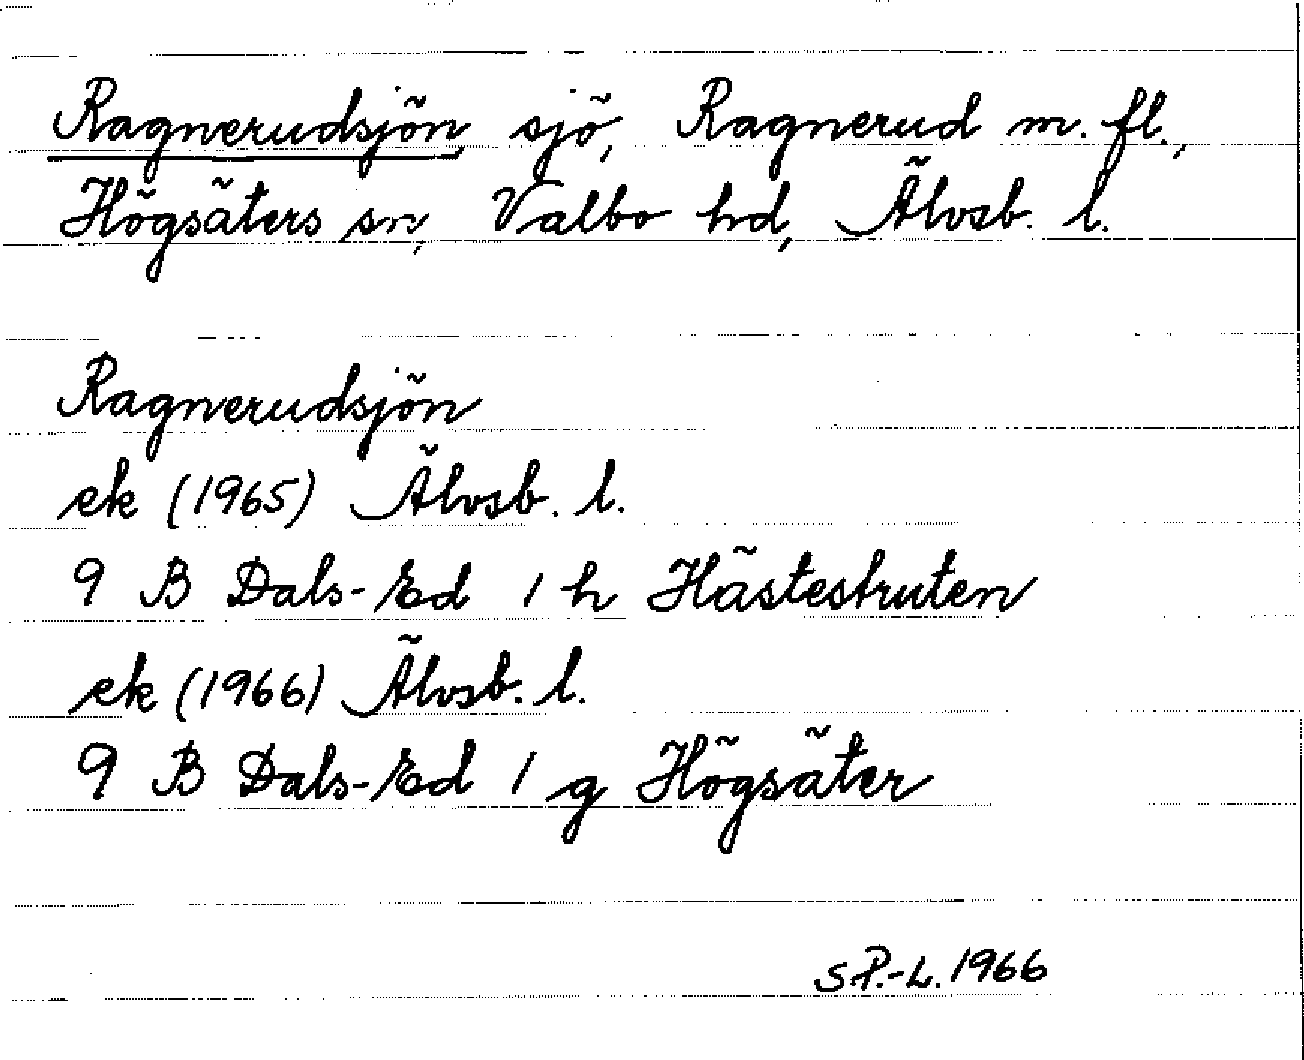 Ragnerudsjön, sjö, Ragnerud m. fl.,
Högsäters sn, Valbo hd, Älvsb. l.
Ragnerudsjön
ek (1965) Älvsb. l.
9 B Dals-Ed 1 h Hästestruten
ek (1966) Älvsb. l.
9 B Dals-Ed 1 g Högsäter
S.P.-L. 1966